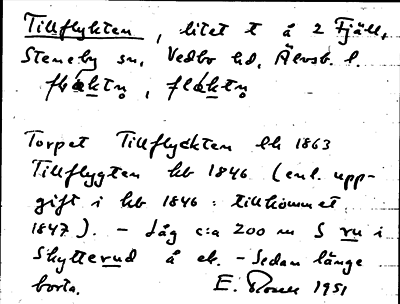 Tillflykten, litet t å 2 Fjäll,
Steneby sn, Vedbo hd, Älvsb. l.
Torpet Tillflyckten lh 1863
Tillflygten hb 1846 (enl. upp-
gift i hb 1846: tillkommet
1847). – Låg c:a 200 m S ru i
Skytterud å ek. – Sedan länge
borta. E. 1951